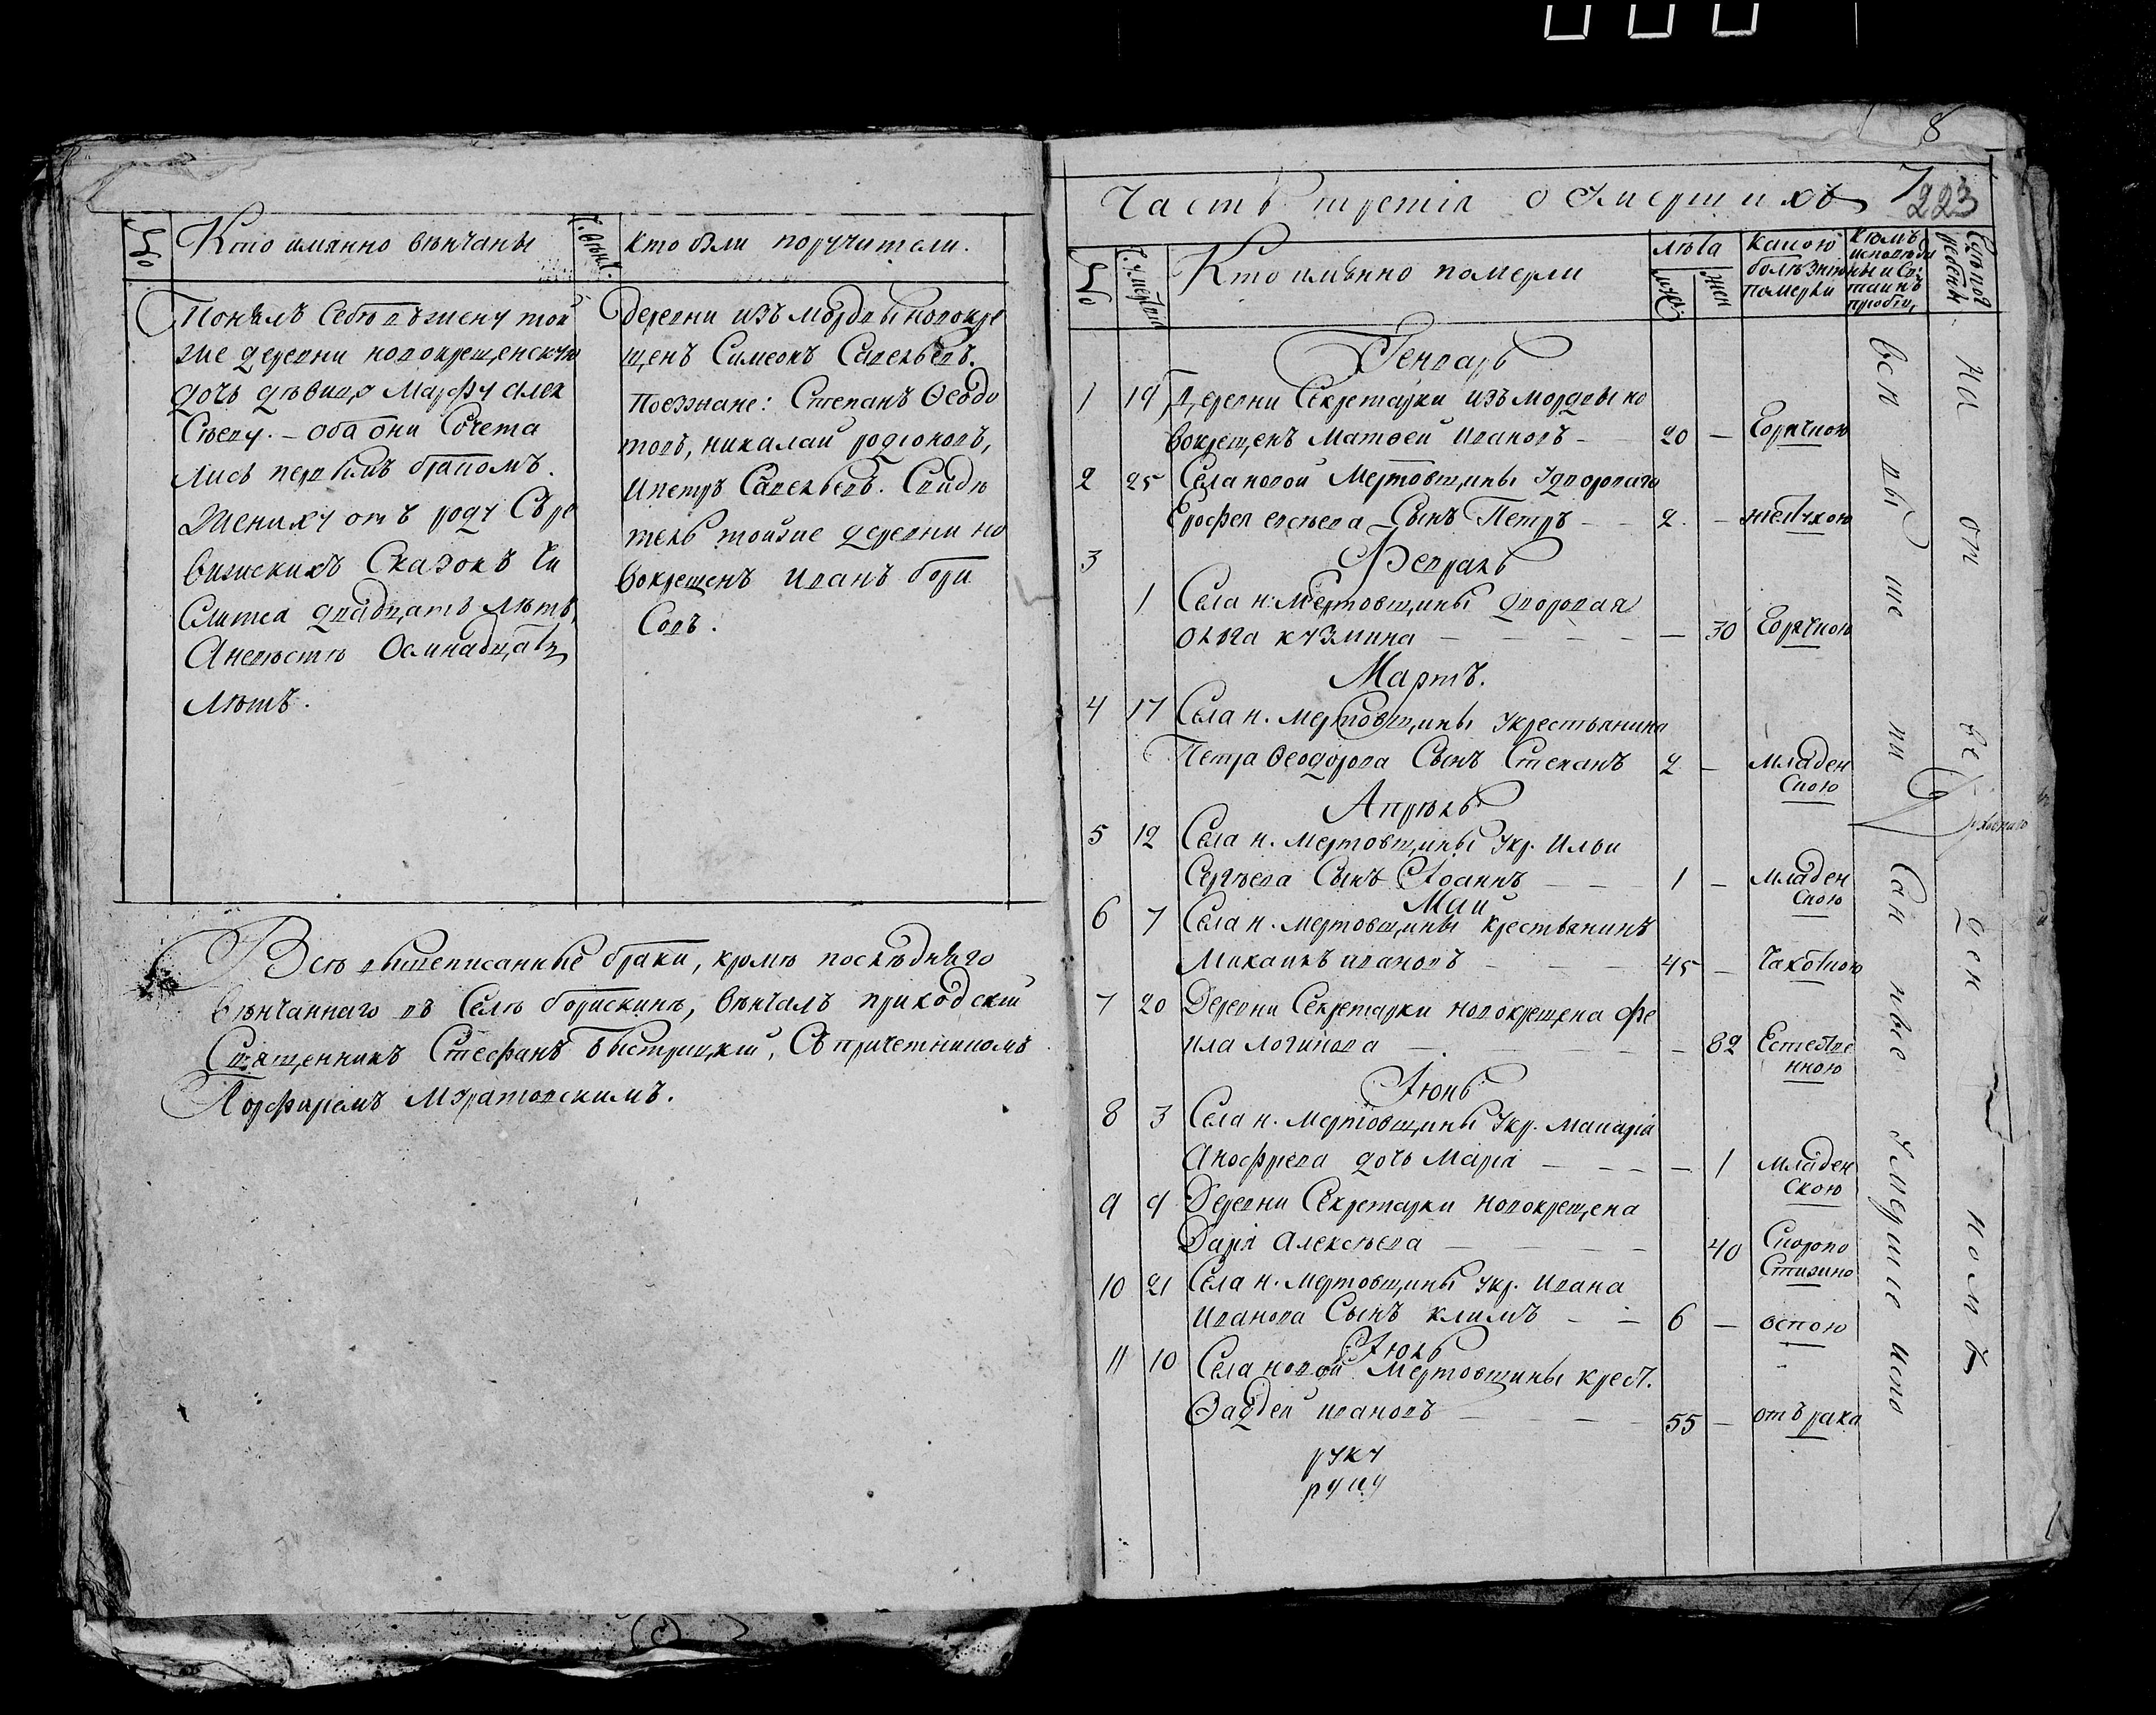 №
Кто имянно вѣнчаны
Ч. вѣнч.
кто были поручители.
Понялъ себѣ въ жену той
же деревни новокрещенскую
дочь дѣвицу Марфу Алек
сѣеву. – оба они сочета
лись первымъ бракомъ.
Жениху отъ роду съ ре
визискихъ сказокъ чи
слится двадцать лѣтъ,
А невѣстѣ осмнадцать
лѣтъ.
деревни изъ мордвы новокре
щенъ Симеонъ Савельевъ.
Поезжане: Степанъ Ѳеодо
товъ, николай родіоновъ,
и петръ Савельевъ. Свидѣ
тель тойже деревни но
вокрещенъ иванъ бори
совъ.
Всѣ вышеписанные браки, кромѣ послѣдняго
вѣнчаннаго въ Селѣ борискинѣ, вѣнчалъ приходскій
Священникъ Стефанъ Быстрицкій, Съ причетникомъ
Порфиріемъ Муратовскимъ.
8
Часть третія о умершихъ
7
223
№
Ч. умертвія
Кто имянно померли
лѣта
муж.
жен
какою болѣзнію померли
Кѣмъ исповѣданы и Св: таинъ пріобщ,
Генварь
1 19 Деревни Секретарки изъ мордвы но
вокрещенъ Матѳей ивановъ – 20 – Горячкою
2 25 Села новой Мертовщины у двороваго
Ерофея евсѣева сынъ Петръ – – 2. – желчкою
3 Февраль
1 Села н: Мертовщины дворовая
ольга кузмина – – – – – – 30 Горячкою
Мартъ.
4 17 Села н. мертовщины у крестьянина
Петра Ѳеодорова Сынъ Степанъ 2 – младен
скою
Апрѣль
5 12 Села н. мертовщины у кр. Ильи
Сергѣева Сынъ Іоаннъ – – – 1 – младен
скою
Маи
6 7 Села н. мертовщины крестьянинъ
Михаилъ ивановъ – – – 45 – Чахоткою
7 20 Деревни Секретарки новокрещена фе
кла логинова – – – – – 82 Естестве
нною
Іюнь
8 3 Села н. Мертовщины у кр. макарія
Анофріева дочь Марія – – – – – 1 младен
скою
9 9 Деревни Секретарки новокрещена
Дарія Алексѣева – – – – 40 Скоропо
стижно
10 21 Села н. мертовщины у кр. Ивана
Иванова Сынъ климъ – – 6 – оспою
Іюль
11 10 Села новой Мертовщины крест.
Ѳадѣй ивановъ – – – – 55 – отъ рака
руку
руку
всѣ вы ше пи сан ные умершіе испо
на от ве ден номъ